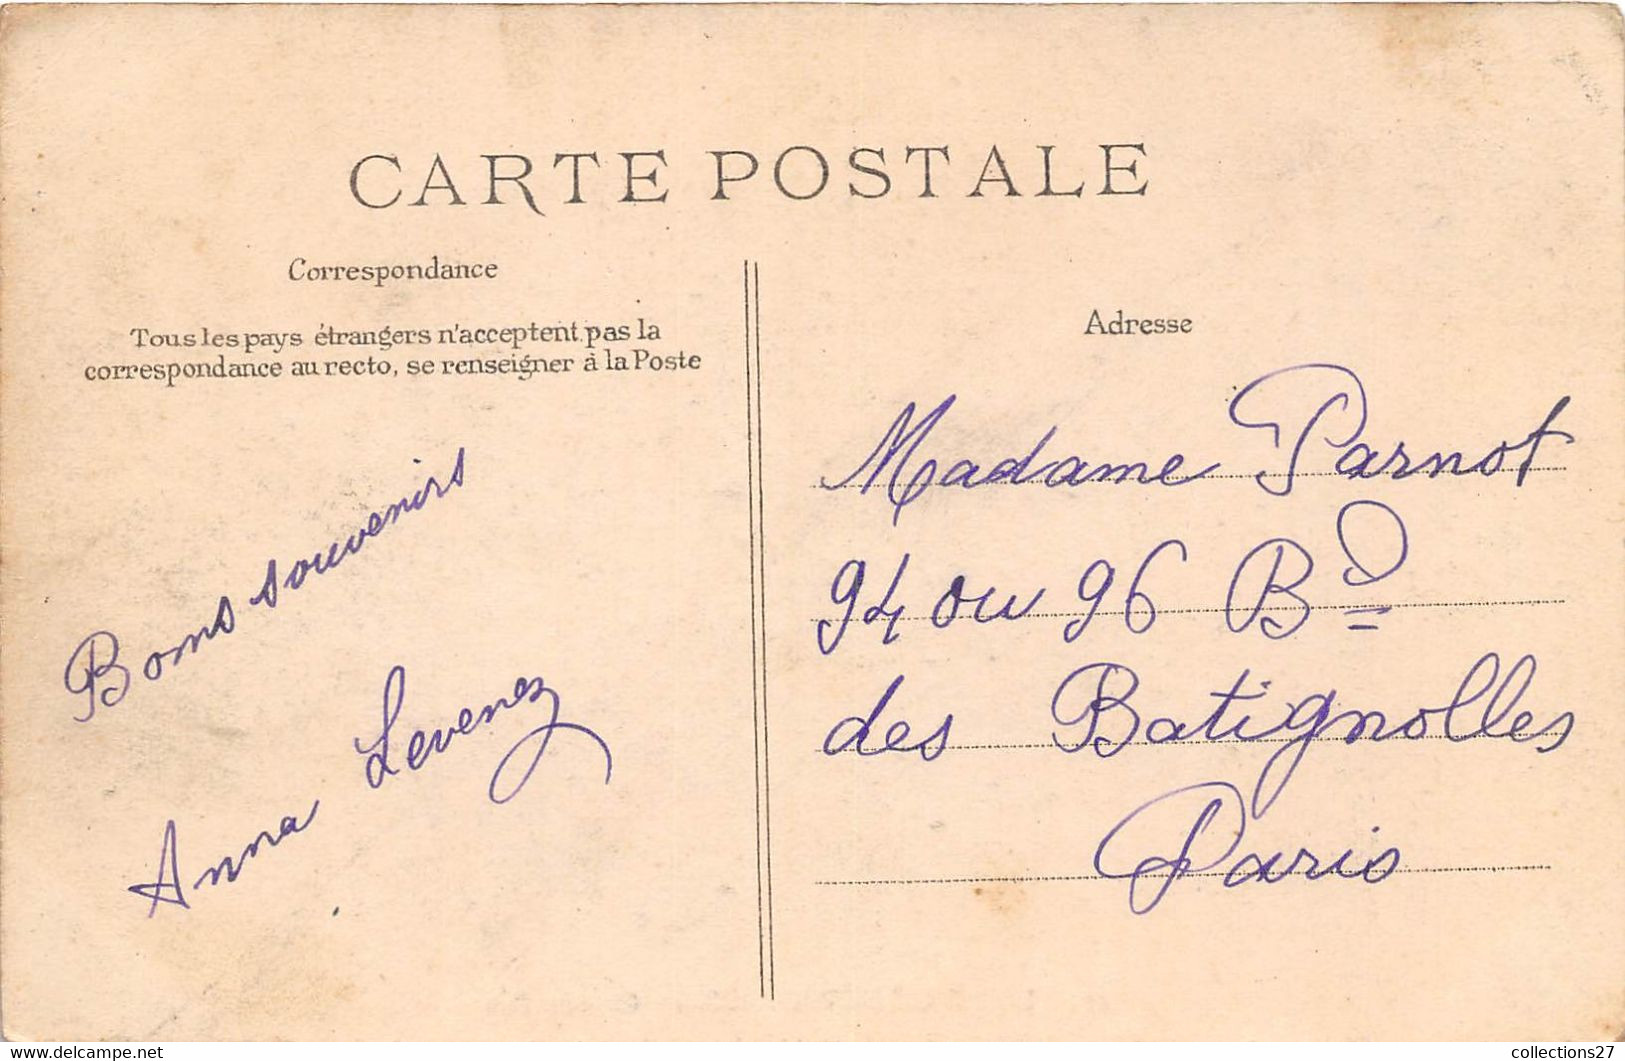 CARTE POSTALE
Correspondance
Tous les pays étrangers n'acceptent pas la
correspondance au recto, se renseigner à la Poste
Bons souvenirs
Anna Levenez
Adresse
Madame Parnot
94 ou 96 Bd
des Batignolles
Paris
www.delcampe.net
collections27